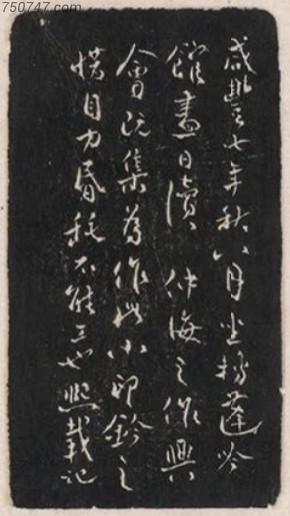 750747.com
咸豐七年秋八月坐移蓬吟
館盡日讀仲海之作興
會既集為作此小印鈐之
惜目力昏耗不能工也熙載記